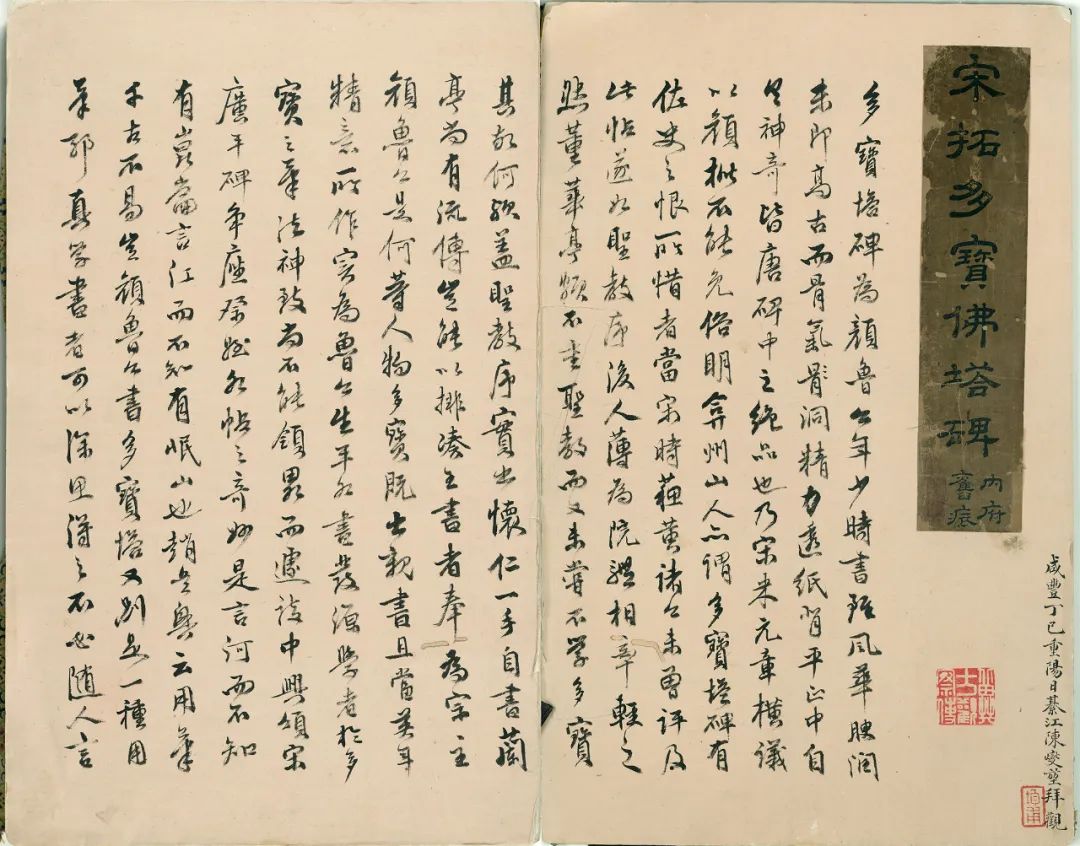 宋拓多寶佛塔碑
內府
舊
咸豐丁巳重陽日綦江陳燮堃拜觀
多寶塔碑為顏魯公年少時書雖風華腴潤
未即高古而骨氣洞精力透紙背平正中自
具神奇皆唐碑中之絕品也乃宋米元章橫議
以顏楷不能免俗明弇州山人亦謂多寶塔碑有
佐史之恨所惜者當宋時蘇黃諸公未曾評及
此帖遂如聖教序後人薄為院體相率輕之
然董華亭頗不重聖教而又未嘗不學多寶
其故何歟蓋聖教序實出懷仁一手自書蘭
亭尚有流傳豈能以排湊王書者奉為宗主
顏魯公是何等人物多寶既出親書且當英年
精意所作實為魯公生平發源學者於多
寶之筆法神致尚不能領略而遽談中興頌宋
廣平碑爭座祭姪各帖之奇妙是言河而不知
有崑崙言江而不知有岷山也趙吳興云用筆
千古不易豈顏魯公書多寶塔又別是一種用
筆耶真學書者可以深思得之不必隨人言